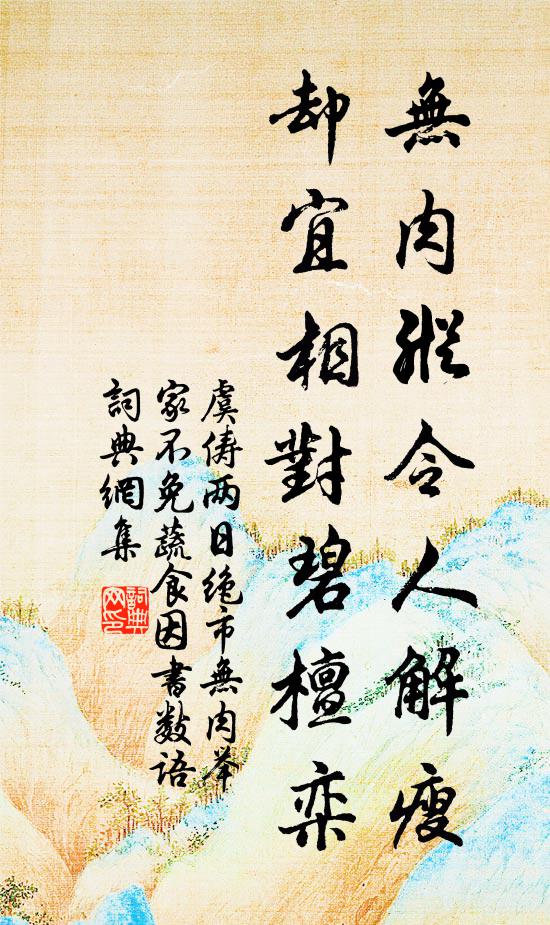 無肉縱令人解瘦
却宜相對碧檀欒
虞儔两日絶市無肉举
家不免蔬食因書數语
詞典網集
詞典網印